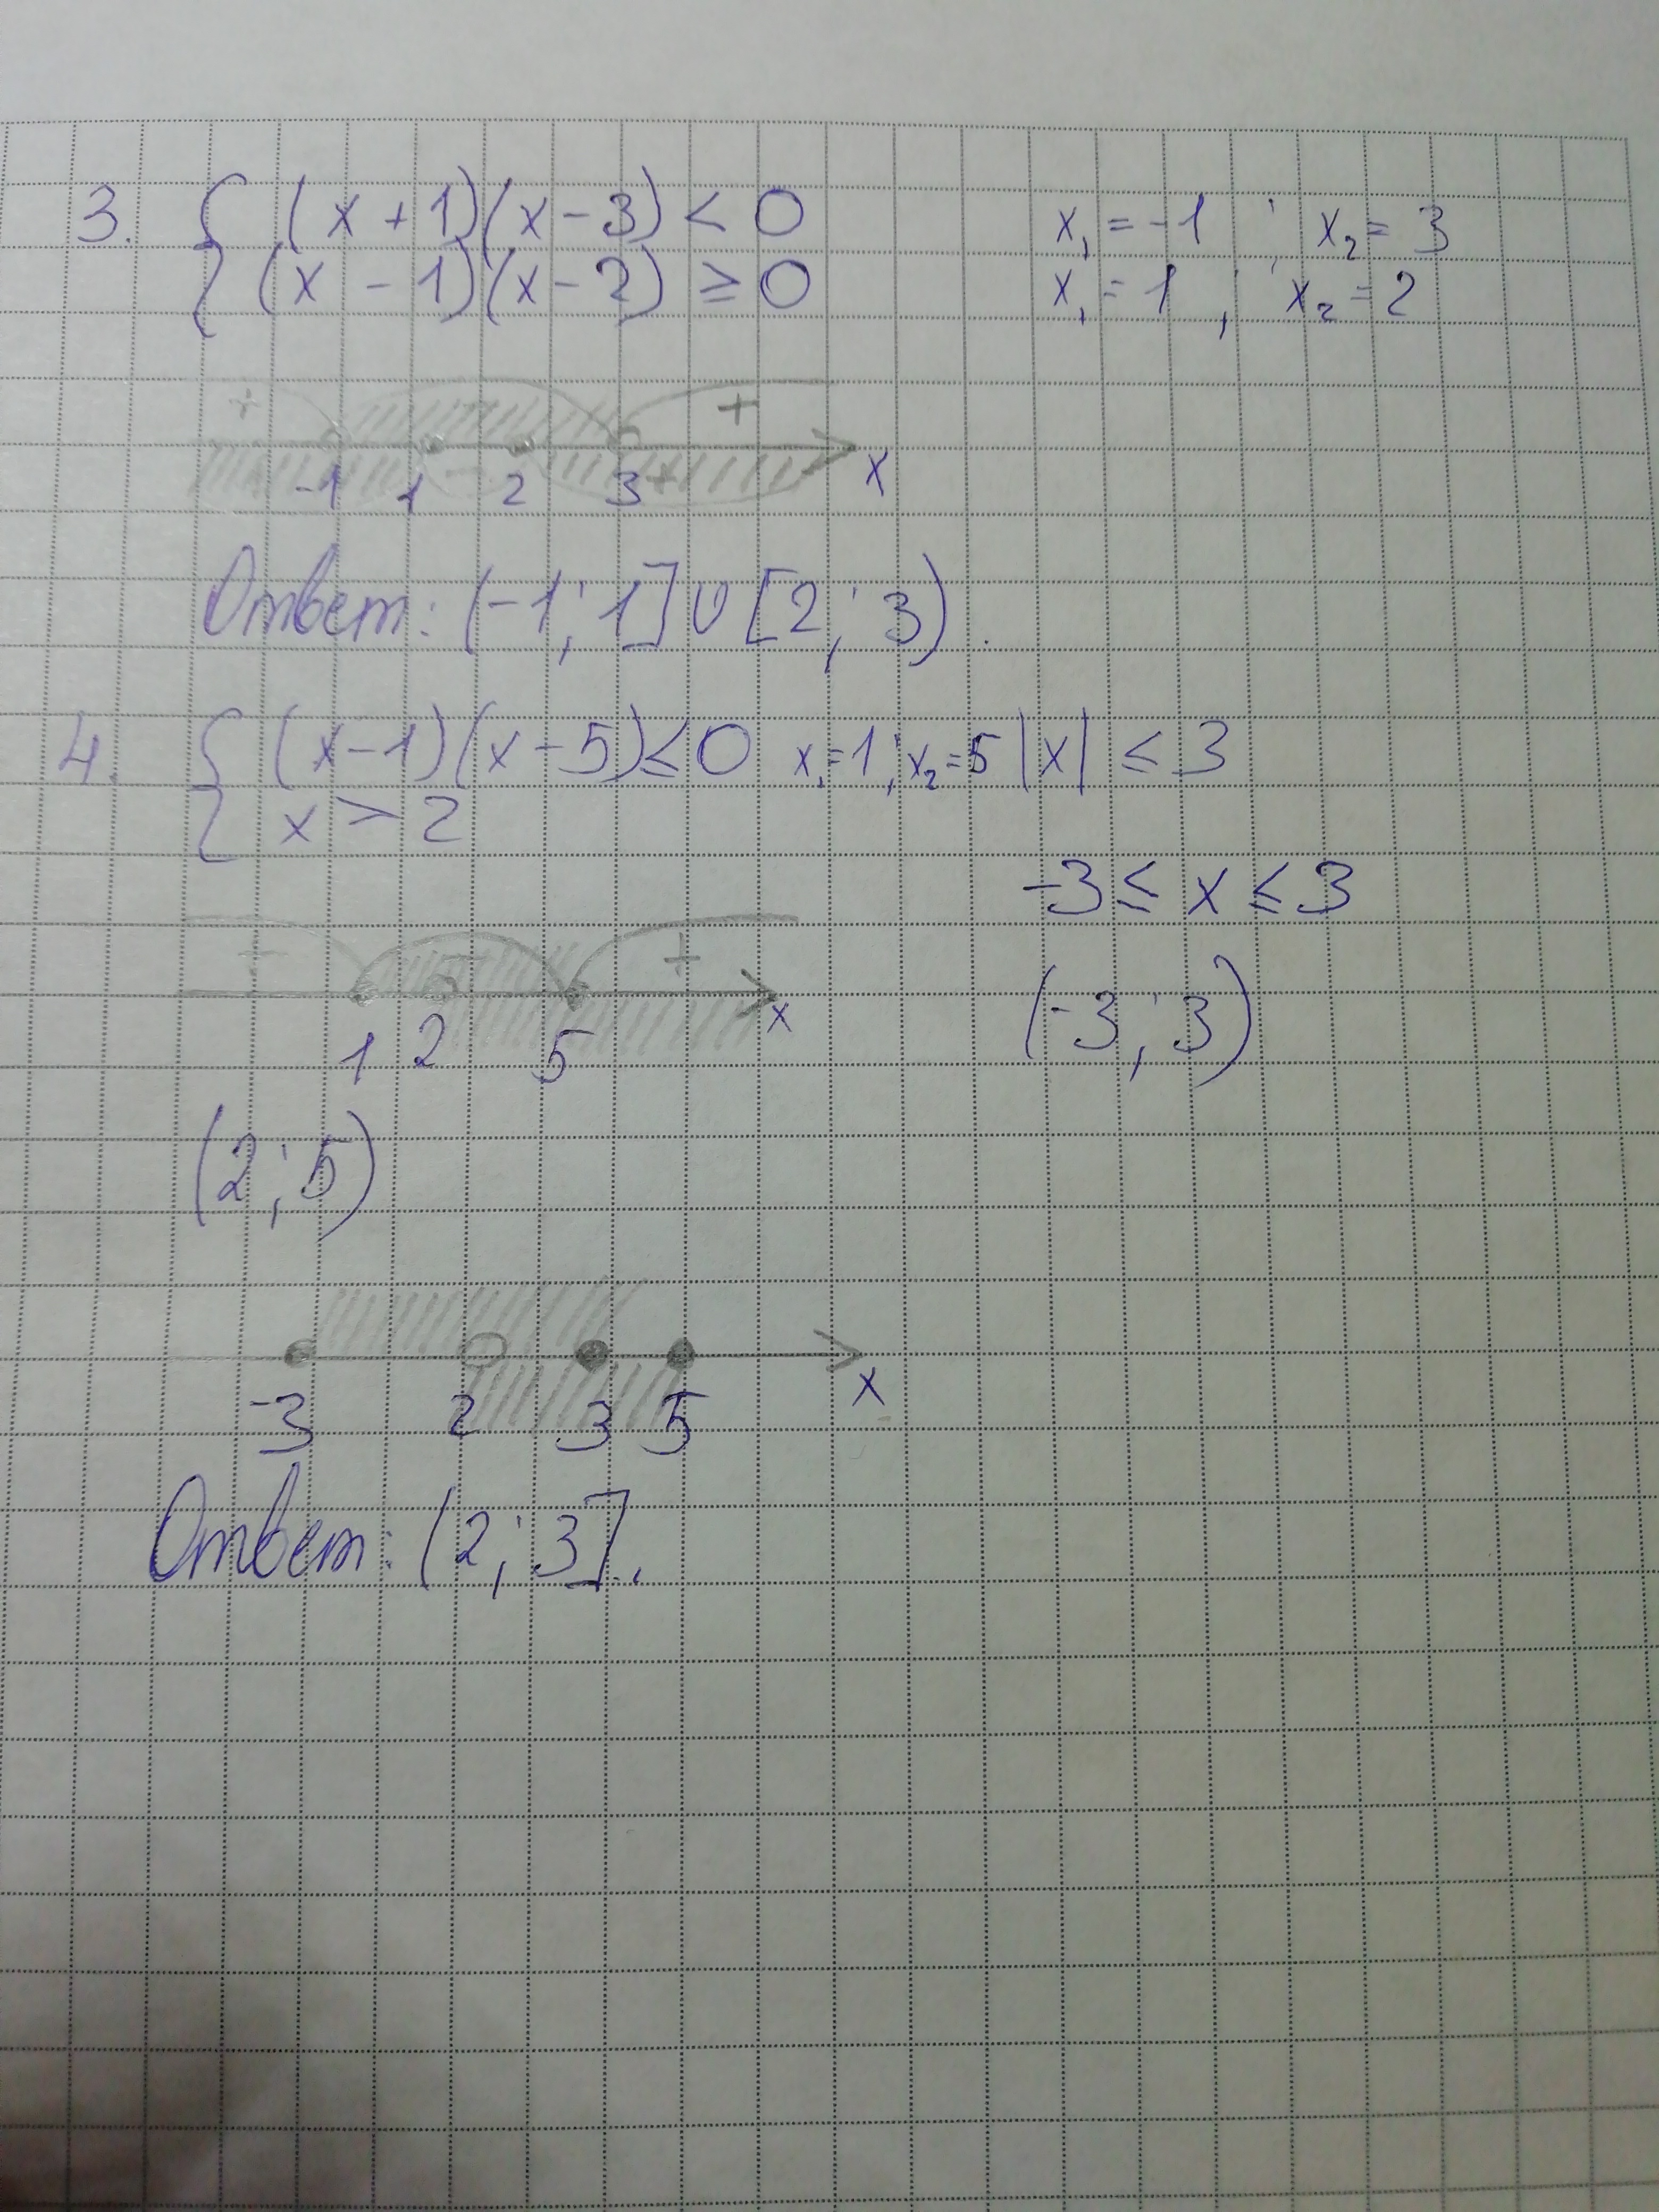 3. { (x + 1)(x - 3) < 0 x₁ = -1 ; x₂ = 3
(x - 1)(x - 2) ≥ 0 x₁ = 1 ; x₂ = 2
+ - +
-1 1 2 3 + x
Ответ: (-1; 1] ∪ [2; 3).
4. { (x-1)(x-5) ≤ 0 x₁=1; x₂=5 |x| ≤ 3
x > 2
-3 ≤ x ≤ 3
+ - +
(-3; 3)
1 2 5 x
(2; 5)
-3 2 3 5 x
Ответ: (2; 3].